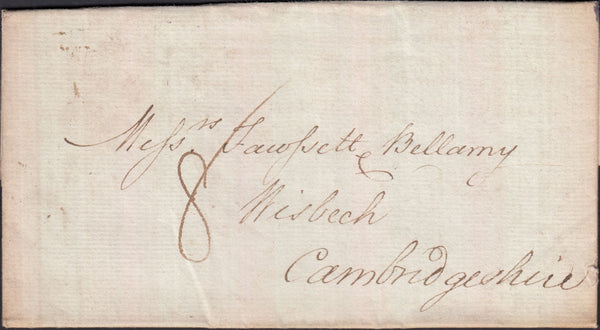 Messrs Fawssett & Bellamy
8
Wisbech
Cambridgeshire